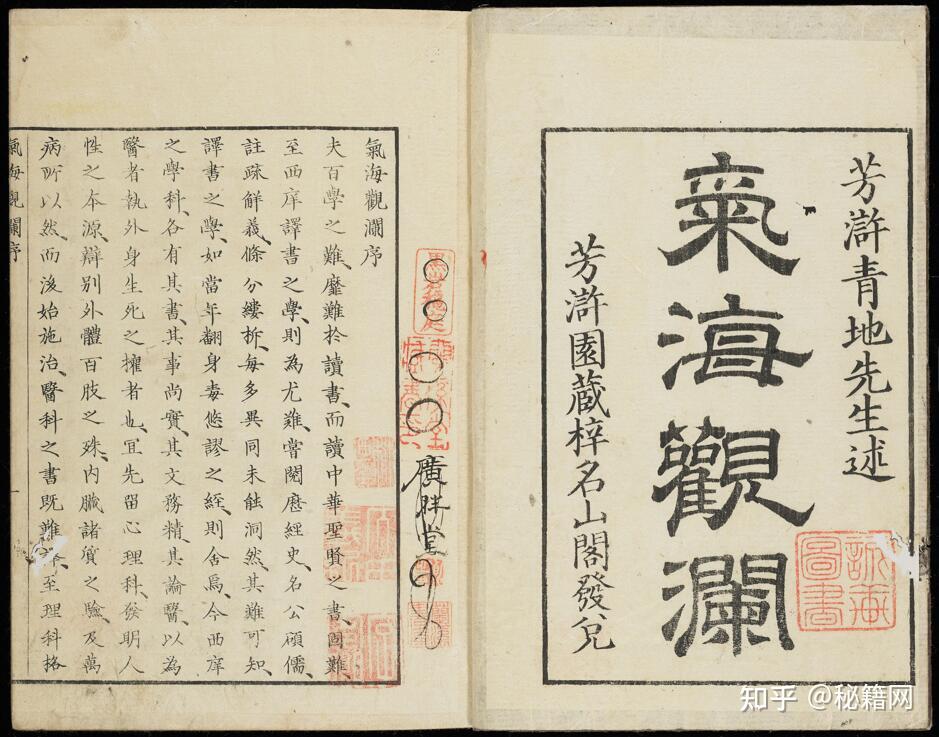 芳滸青地先生述
氣海觀瀾
芳滸園蔵梓名山閣發兌
圖書
廣胖堂
氣海觀瀾序
夫百學之難靡難於讀書而讀中華聖賢之書固難
至西庠譯書之學則為尤難嘗閱歷經史名公碩儒
註疏解義條分縷柝每多異同未能洞然其難可知
譯書之學如當年翻身毒悠謬之經則舍焉今西庠
之學科各有其書其事尚實其文務精其論醫以為
醫者執外身生死之權者也宜先留心理科發明人
性之本源辯別外體百肢之殊內臟諸質之驗及萬
病所以然而後始施治醫科之書既難至理科格
氣海觀瀾序
一
知乎 @秘籍网